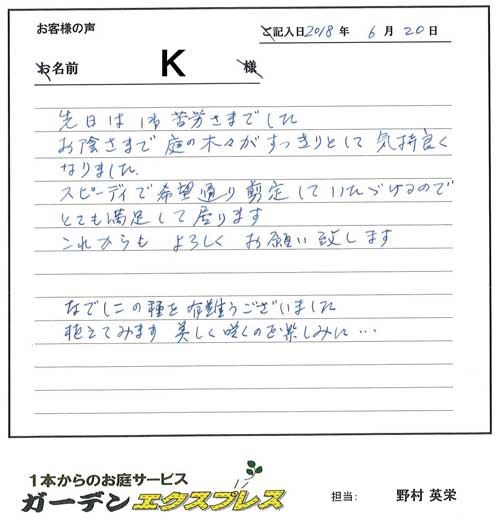 お客様の声
ご記入日2018年 6月20日
お名前 K 様
先日は ご苦労さまでした
お陰さまで 庭の木々が すっきりとして 気持良く
なりました.
スピーディで希望通り剪定していただけるので
とても満足して居ります
これからも よろしく お願い致します
なでしこの種を有難うございました
植えてみます 美しく咲くのを楽しみに…
1本からのお庭サービス
ガーデンエクスプレス
担当: 野村 英栄